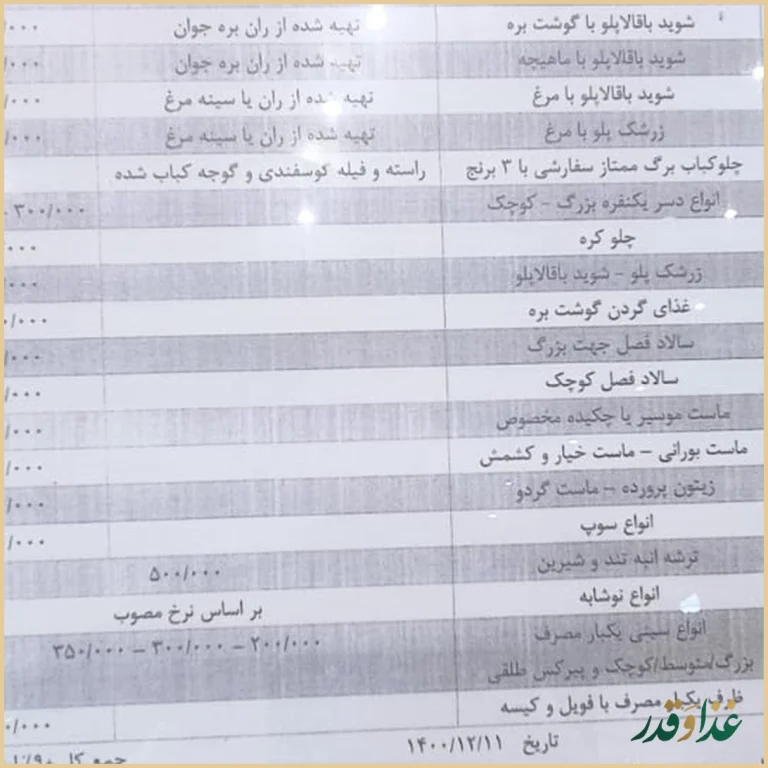 شوید باقالاپلو با گوشت بره تهیه شده از ران بره جوان ۰۰۰
شوید باقالاپلو با ماهیچه تهیه شده از ران بره جوان /۰۰۰
شوید باقالاپلو با مرغ تهیه شده از ران یا سینه مرغ /۰۰۰
زرشک پلو با مرغ تهیه شده از ران یا سینه مرغ /۰۰۰
چلوکباب برگ ممتاز سفارشی با ۳ برنج راسته و فیله گوسفندی و گوجه کباب شده
انواع دسر یکنفره بزرگ - کوچک ۳۰۰/۰۰۰
چلو کره ۰۰۰
زرشک پلو - شوید باقالاپلو ۰۰۰
غذای گردن گوشت بره /۰۰۰
سالاد فصل جهت بزرگ /۰۰۰
سالاد فصل کوچک /۰۰۰
ماست موسیر یا چکیده مخصوص /۰۰۰
ماست بورانی - ماست خیار و کشمش /۰۰۰
زیتون پرورده - ماست گردو /۰۰۰
انواع سوپ /۰۰۰
ترشه انبه تند و شیرین ۵۰۰/۰۰۰
انواع نوشابه بر اساس نرخ مصوب
انواع سینی یکبار مصرف ۲۰۰/۰۰۰ - ۳۰۰/۰۰۰ - ۳۵۰/۰۰۰
بزرگ/متوسط/کوچک و پیرکس طلقی
ظرف یکبار مصرف با فویل و کیسه ۰/۰۰۰
تاریخ ۱۴۰۰/۱۲/۱۱
جمع کل
غذا و قدر